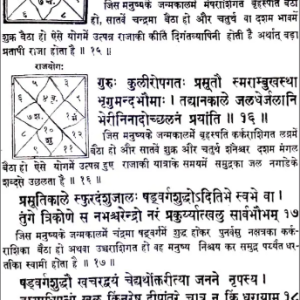 ७ चं.
जिस मनुष्यके जन्मकालमें मेषराशिगत बृहस्पति बैठा
हो, सातवें चन्द्रमा बैठा हो और चतुर्थ वा दशम भावमें
शुक्र बैठा हो ऐसे योगमें उत्पन्न राजाकी कीर्ति दिगंतव्यापिनी होती है अर्थात् बड़ा
प्रतापी राजा होता है ॥ १५ ॥
राजयोगः
गुरुः कुलीरोपगतः प्रसूतौ स्मराम्बुखस्था
भृगुमन्दभौमाः । तद्यानकाले जलधेर्जलानि
भेरीनिनादोच्छलनं प्रयांति ॥ १६ ॥
जिस मनुष्यके जन्मकालमें बृहस्पति कर्कराशिगत होकर
बैठा हो और सातवें शुक्र और चतुर्थ शनिश्चर दशम मंगल
बैठा हो ऐसे योगमें उत्पन्न हुए राजाकी यात्राके समयमें समुद्रका जल नगाडेके
शब्दसे उछलता है ॥ १६ ॥
प्रसूतिकाले स्फुरदंशुजालः षड्वर्गशुद्धोऽदितिभे स्वभे वा ।
तुंगे त्रिकोणे स नभश्चरेन्द्रो नरं प्रकुर्य्यात्खलु सार्वभौमम् १७
जिस मनुष्यके जन्मकालमें चन्द्रमा षड्वर्गमें शुद्ध होकर पुनर्वसु नक्षत्रका कर्क-
राशिका बैठा हो अथवा उच्चराशिगत हो वह मनुष्य निश्चय कर समुद्र पर्यंत धर-
तीका स्वामी होता है ॥ १७ ॥
षड्वर्गशुद्धौ खचरद्वयं चेद्यथोंक्तरीत्या जनने नृपस्य ।